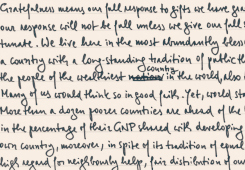 Gratefulness means our full response to gifts we have
our response will not be full unless we give our full
tunate. We live here in the most abundantly bless
a country with a long-standing tradition of public th
country
the people of the wealthiest nation in the world, also
Many of us would think so in good faith. Yet, would sta
More than a dozen poorer countries are ahead of the
in the percentage of their GNP shared with developing
own country, moreover, in spite of its tradition of equal
high regard for neighbourly help, fair distribution of our